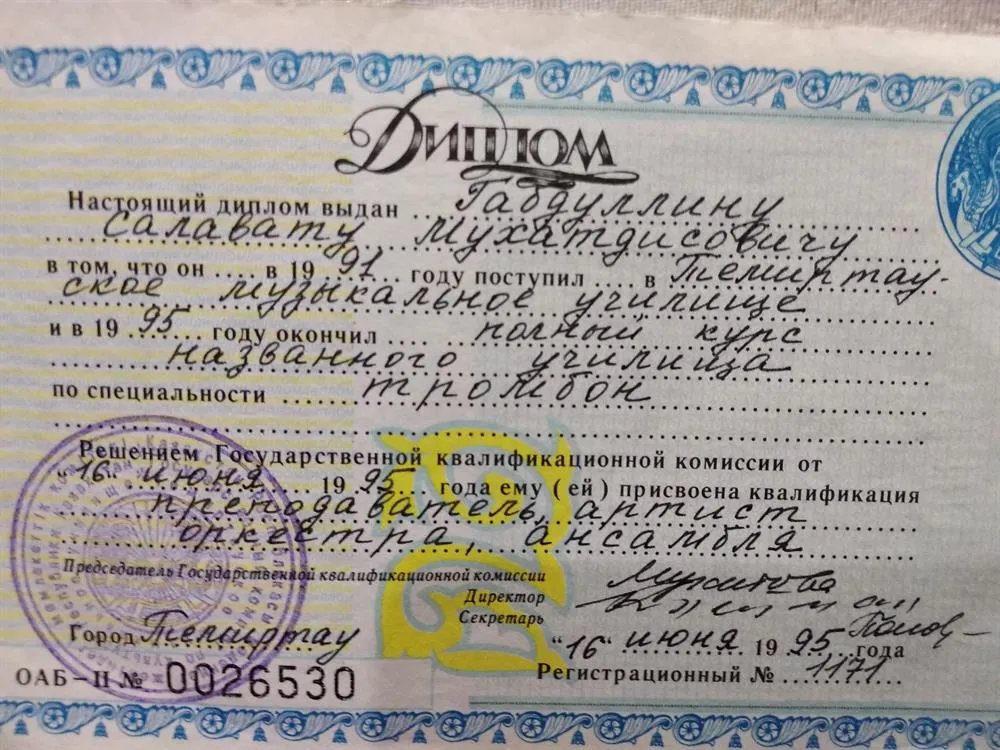 Диплом
Настоящий диплом выдан Габдуллину
Салавату Мухатдисовичу
в том, что он в 1991 году поступил в Темиртау-
ское музыкальное училище
и в 1995 году окончил полный курс
названного училища
по специальности тромбон
Решением Государственной квалификационной комиссии от
"16" июня 1995 года ему (ей) присвоена квалификация
преподаватель, артист
оркестра, ансамбля
Председатель Государственной квалификационной комиссии
Директор
Секретарь
Город Темиртау "16" июня 1995 года
ОАБ-II № 0026530 Регистрационный № 1171